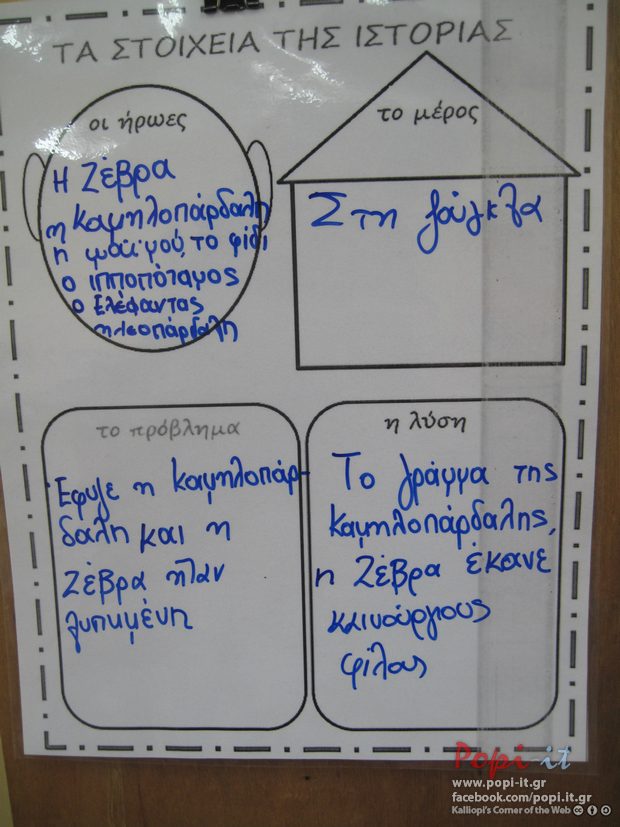 ΤΑ ΣΤΟΙΧΕΙΑ ΤΗΣ ΙΣΤΟΡΙΑΣ
οι ήρωες
Η Ζέβρα
η καμηλοπάρδαλη
η μαϊμού, το φίδι
ο ιπποπόταμος
ο Ελέφαντας
η λεοπάρδαλη
το μέρος
Στη ζούγκλα
το πρόβλημα
Έφυγε η καμηλοπάρ-
δαλη και η
Ζέβρα ήταν
λυπημένη
η λύση
Το γράμμα της
καμηλοπάρδαλης,
η Ζέβρα έκανε
καινούργιους
φίλους
Popi-it
www.popi-it.gr
facebook.com/popi.it.gr
Kalliopi's Corner of the Web